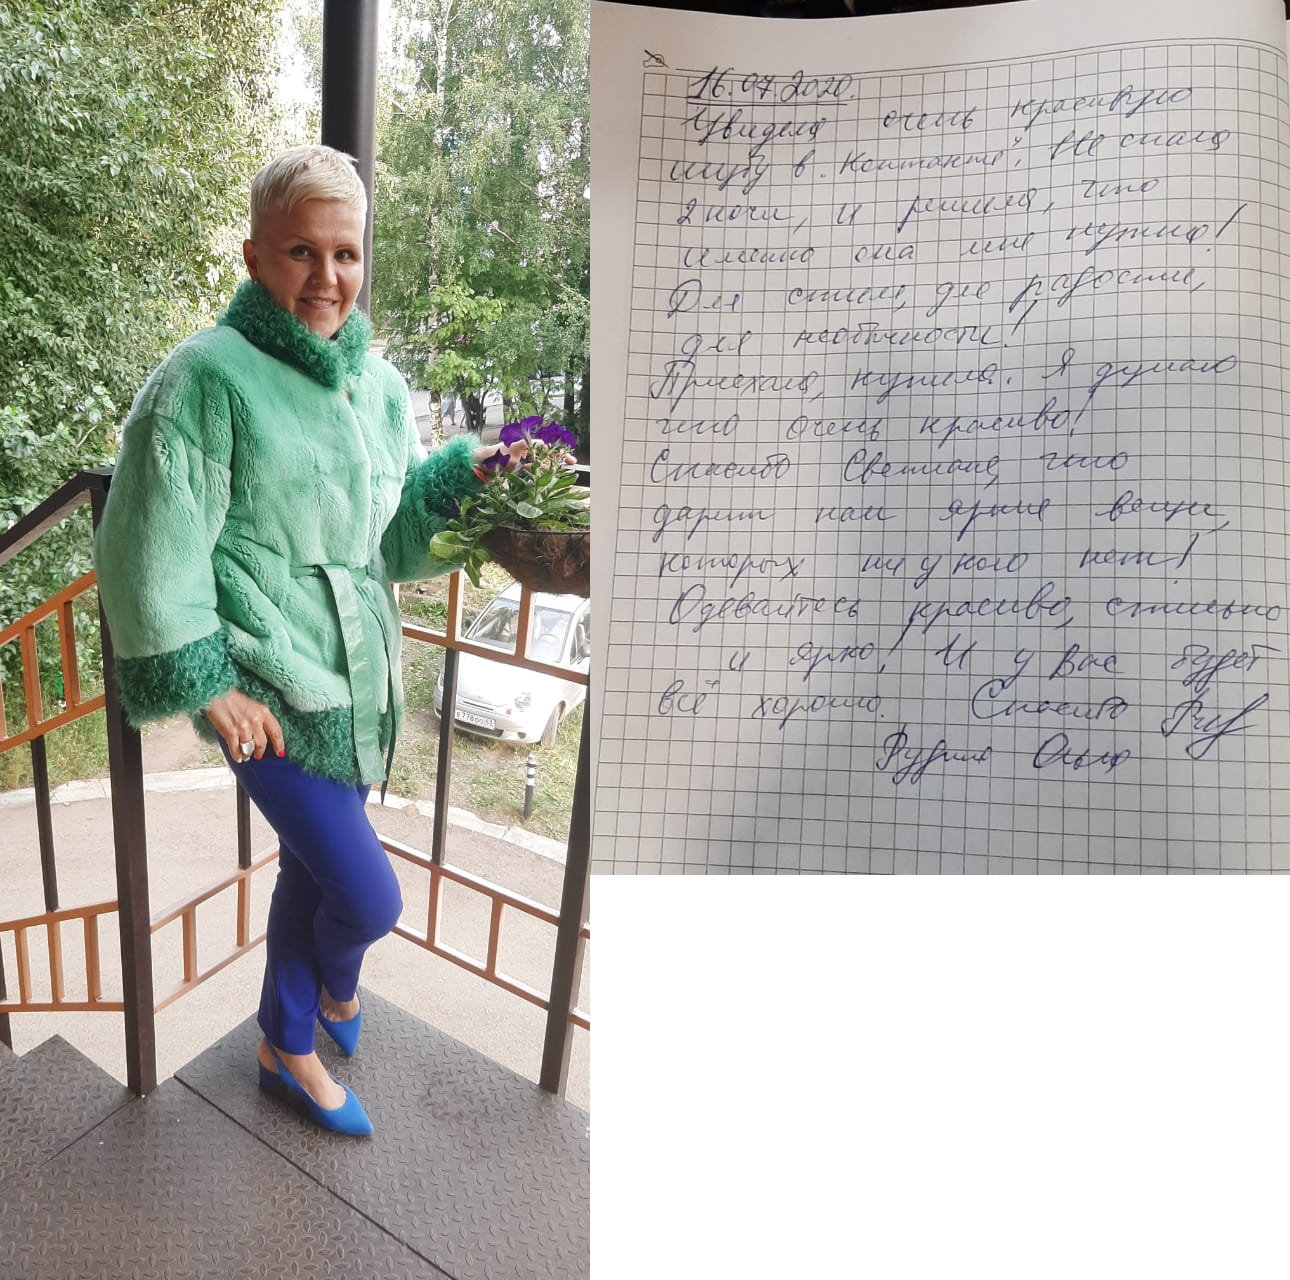 Е778ОО
16.07.2020.
Увидела очень красивую
шубу в "Контакте". Не спала
2 ночи, и решила, что
именно она мне нужна!
Для стиля, для радости,
для необычности!
Приехала, купила. Я думаю
что очень красиво!
Спасибо Светлане, что
дарит нам яркие вещи,
которых ни у кого нет!
Одевайтесь красиво, стильно
и ярко! И у Вас будет
всё хорошо. Спасибо
Ольга